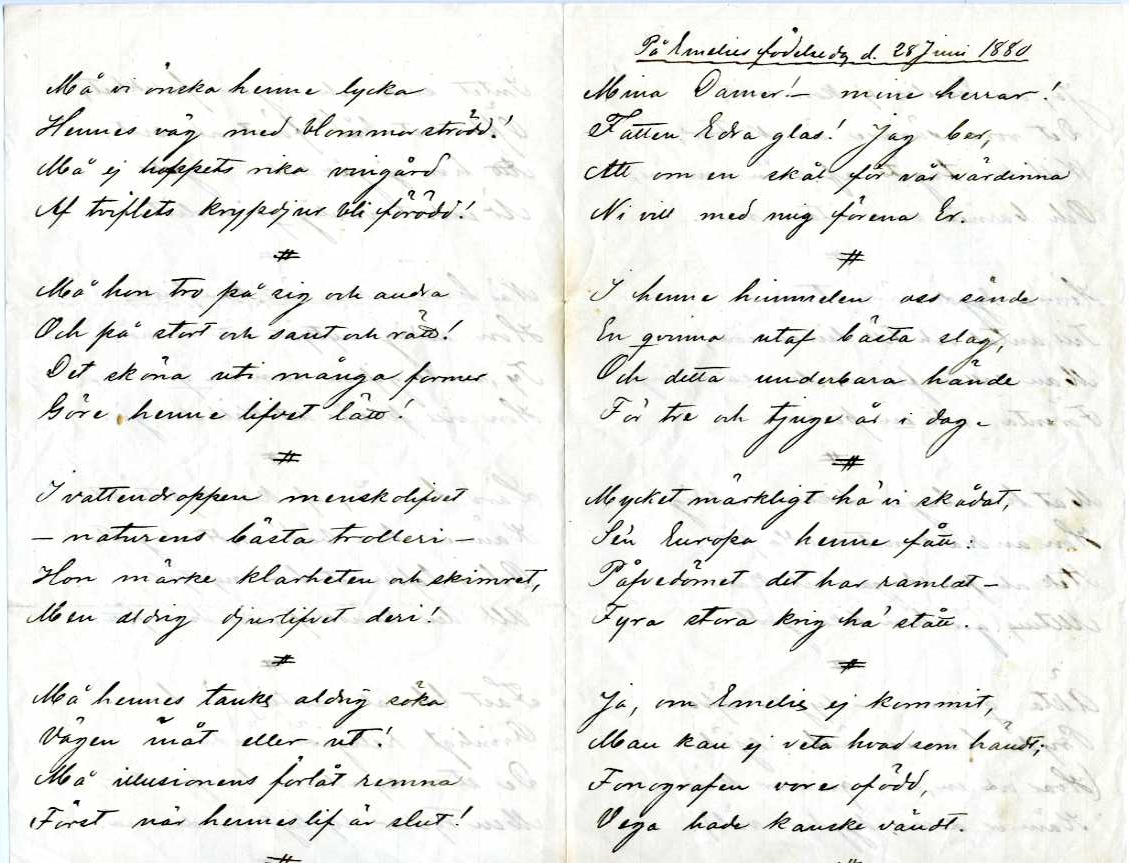 Må vi önska henne lycka
Hennes väg med blommor strödd!
Må ej hoppets rika vingård
Af tviflets krypdjur bli förödd!
#
Må hon tro på sig och andra
Och på stort och sant och rätt!
Det sköna uti många former
Göre henne lifvet lätt!
#
I vattendroppen menskolifvet
– naturens bästa trolleri –
Hon märke klarheten och skimret,
Men aldrig djurlifvet deri!
#
Må hennes tanke aldrig söka
Vägen inåt eller ut!
Må illusionens förlåt remna
Först när hennes lif är slut!
#
På Emelies födelsedg d. 28 Juni 1880
Mina Damer! – mine herrar!
Fatten Edra glas! Jag ber,
Att om en skål för vår värdinna
Ni vill med mig förena Er.
#
I henne himmelen oss sände
En qvinna utaf bästa slag,
Och detta underbara hände
För tre och tjuge år i dag –
#
Mycket märkligt ha' vi skådat,
Se'n Europa henne fått:
Påfvedömet det har ramlat –
Fyra stora krig ha' stått.
#
Ja, om Emelie ej kommit,
Man kan ej veta hvad som händt;
Fonografen vore ofödd,
Vega hade kanske vändt.
#